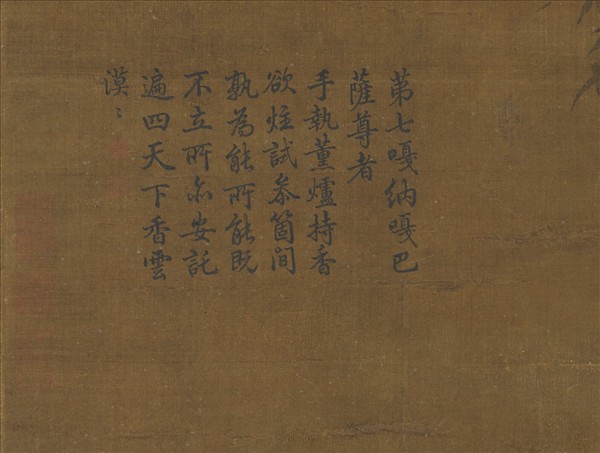 第七嘎納嘎巴
薩尊者
手執薰爐持香
欲炷試叅箇间
孰為能所能既
不立所亦安託
遍四天下香雲
漠〻